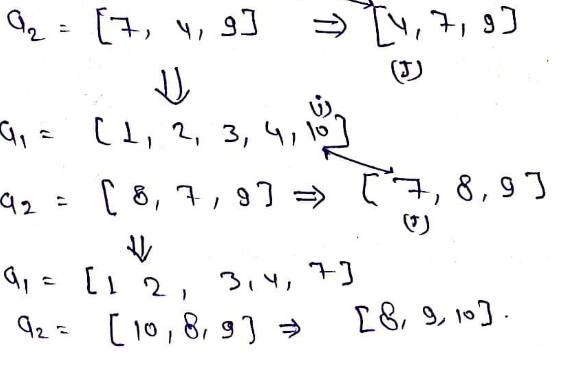 a2 = [7, 4, 9] ⇒ [4, 7, 9]
(J)
⇓
(i)
a1 = [1, 2, 3, 4, 10]
a2 = [8, 7, 9] ⇒ [7, 8, 9]
(J)
⇓
a1 = [1 2, 3, 4, 7]
a2 = [10, 8, 9] ⇒ [8, 9, 10].